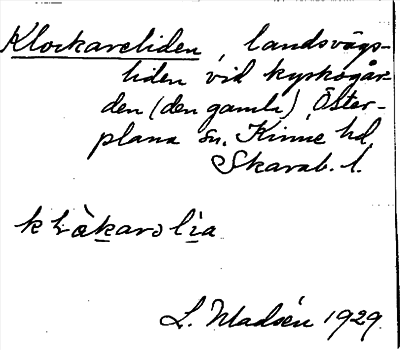 Klockareliden, landsvägs-
liden vid kyrkogår-
den (den gamla) Öster-
plana sn, Kinne hd,
Skarab. l.
L. Madsén 1929.